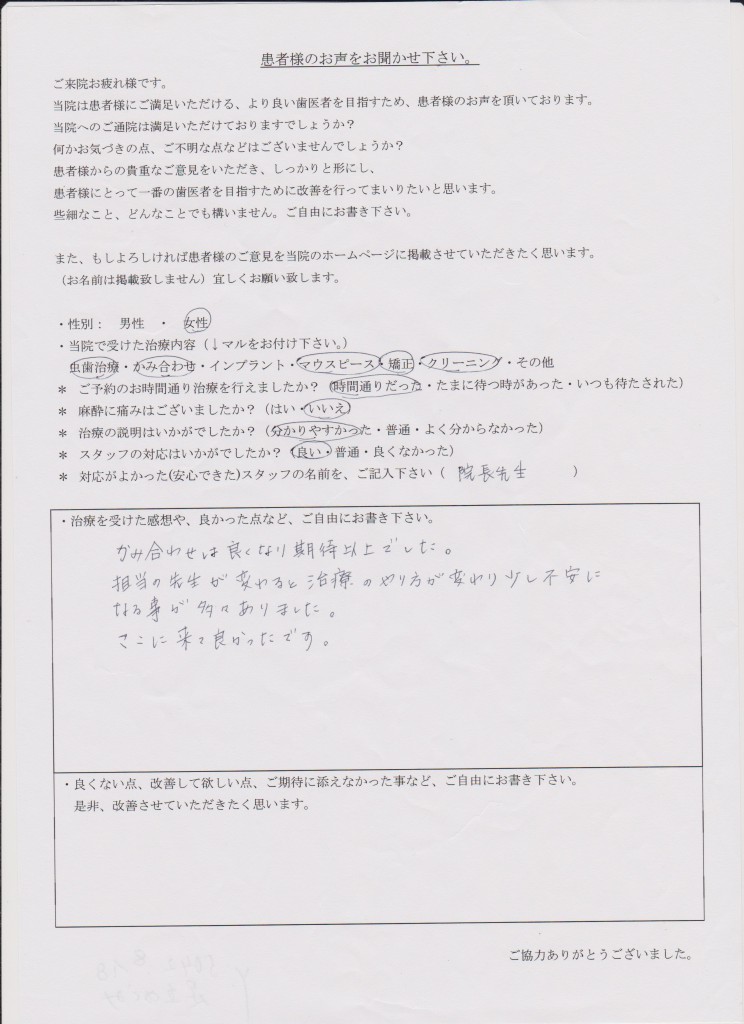 患者様のお声をお聞かせ下さい。
ご来院お疲れ様です。
当院は患者様にご満足いただける、より良い歯医者を目指すため、患者様のお声を頂いております。
当院へのご通院は満足いただけておりますでしょうか?
何かお気づきの点、ご不明な点などはございませんでしょうか?
患者様からの貴重なご意見をいただき、しっかりと形にし、
患者様にとって一番の歯医者を目指すために改善を行ってまいりたいと思います。
些細なこと、どんなことでも構いません。ご自由にお書き下さい。
また、もしよろしければ患者様のご意見を当院のホームページに掲載させていただきたく思います。
(お名前は掲載致しません)宜しくお願い致します。
・性別: 男性 ・ 女性
・当院で受けた治療内容(↓マルをお付け下さい。)
虫歯治療・かみ合わせ・インプラント・マウスピース・矯正・クリーニング・その他
* ご予約のお時間通り治療を行えましたか?(時間通りだった・たまに待つ時があった・いつも待たされた)
* 麻酔に痛みはございましたか?(はい・いいえ)
* 治療の説明はいかがでしたか?(分かりやすかった・普通・よく分からなかった)
* スタッフの対応はいかがでしたか?(良い・普通・良くなかった)
* 対応がよかった(安心できた)スタッフの名前を、ご記入下さい( 院長先生 )
・治療を受けた感想や、良かった点など、ご自由にお書き下さい。
かみ合わせは良くなり期待以上でした。
担当の先生が変わると治療のやり方が変わり少し不安に
なる事が多々ありました。
ここに来て良かったです。
・良くない点、改善して欲しい点、ご期待に添えなかった事など、ご自由にお書き下さい。
是非、改善させていただきたく思います。
ご協力ありがとうございました。